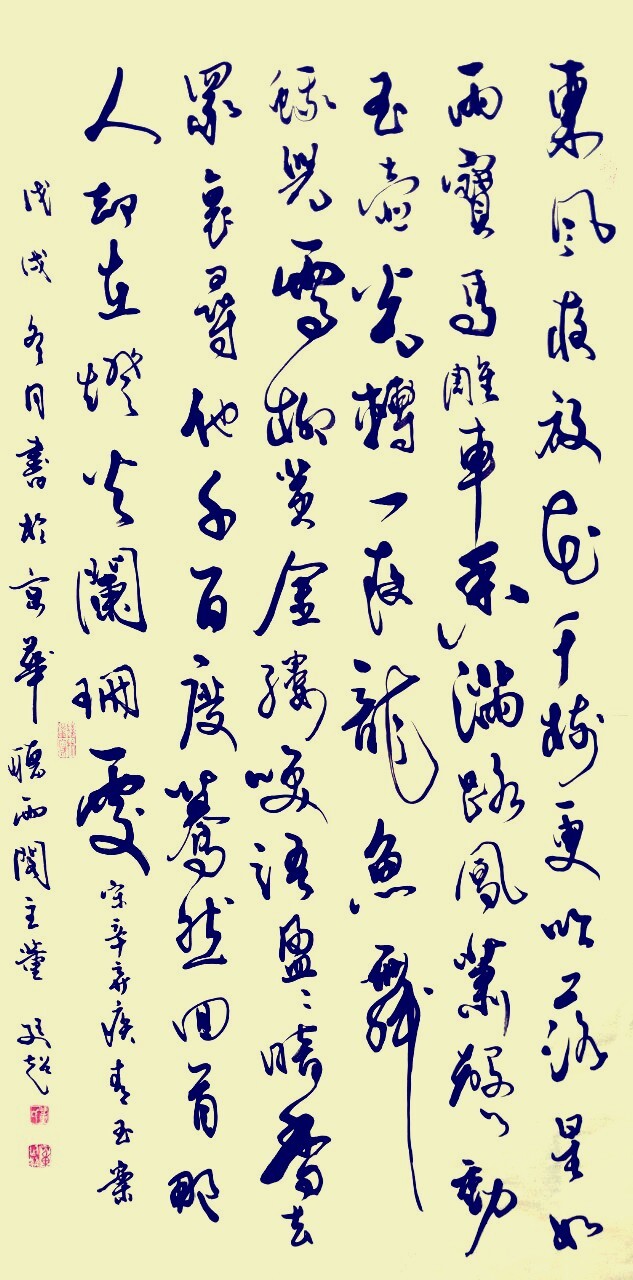 東風夜放花千樹更吹落星如
雨寶馬雕車香滿路鳳簫聲動
玉壺光轉一夜龍魚舞
蛾兒雪柳黃金縷咲語盈〻暗香去
眾裏尋他千百度驀然回首那
人却在燈火闌珊處
宋辛弃疾青玉案
戊戌冬月書於京華聽雨閣主董超